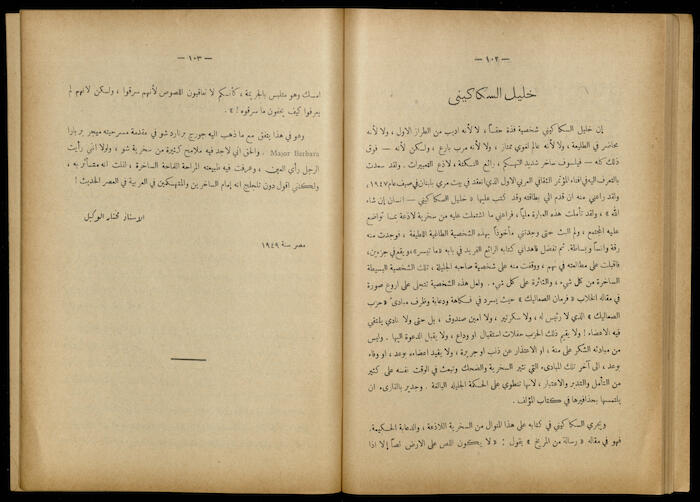 — ١٠٢ —
خليل السكاكيني
إن خليل السكاكيني شخصية فذة حقاً، لا لأنه اديب من الطراز الاول، ولا لأنه
محاضر في الطليعة، ولا لأنه عالم لغوي ممتاز، ولا لأنه مرب بارع، ولكن لأنه — فوق
ذلك كله — فيلسوف ساخر شديد التهكم، رائع النكتة، لاذع التعبيرات. ولقد سعدت
بالتعرف اليه في اثناء المؤتمر الثقافي العربي الاول الذي انعقد في بيت مري بلبنان في صيف عام ١٩٤٧،
ولقد راعني منه ان قدم الي بطاقته وقد كتب عليها «خليل السكاكيني — إنسان إن شاء
الله»، ولقد تأملت هذه العبارة ملياً، فراعني ما اشتملت عليه من سخرية لاذعة بما تواضع
عليه المجتمع، ولم البث حتى وجدتني مأخوذاً بهذه الشخصية الطاغية اللطيفة، فوجدت منه
رقة وانساً وبساطة. ثم تفضل فاهداني كتابه الرائع الفريد في بابه «ما تيسر»، ويقع في جزءين،
فاقبلت على مطالعته في نهم، ووقفت منه على شخصية صاحبه الجليلة، تلك الشخصية البسيطة
الساخرة من كل شيء، والثائرة على كل شيء. ولعل هذه الشخصية تتجلى على اروع صورة
في مقاله الخلاب «فرمان الصعاليك» حيث يسرد في فكاهة ودعابة وظرف مبادئ «حزب
الصعاليك» الذي لا رئيس له، ولا سكرتير، ولا امين صندوق، بل حتى ولا نادي يلتقي
فيه الاعضاء! ولا يقيم ذلك الحزب حفلات استقبال او وداع، ولا يقبل الدعوة اليها. وليس
من مبادئه الشكر على منة، او الاعتذار عن ذنب او جريرة، ولا يقيد اعضاءه بوعد، او وفاء
بوعد، الى آخر تلك المبادىء التي تثير السخرية والضحك وتبعث في الوقت نفسه على كثير
من التأمل والتدبر والاعتبار، لانها تنطوي على الحكمة الجليلة البالغة. وجدير بالقارىء ان
يلتمسها بحذافيرها في كتاب المؤلف.
ويجري السكاكيني في كتابه على هذا المنوال من السخرية اللاذعة، والدعابة الحكيمة.
فهو في مقاله «رسالة من المريخ» يقول: «لا يكون اللص على الارض لصاً إلا اذا
— ١٠٣ —
امسك وهو متلبس بالجريمة، كأنكم لا تعاقبون اللصوص لأنهم سرقوا، ولكن لانهم لم
يعرفوا كيف يخفون ما سرقوه!».
وهو في هذا يتفق مع ما ذهب اليه جورج برنارد شو في مقدمة مسرحيته ميجر بربارا
Major Barbara. والحق اني لاجد فيه ملامح كثيرة من سخرية شو، ولولا انني رأيت
الرجل رأي العين، وعرفت فيه طبيعته المراحة الفاكهة الساخرة، لقلت انه متأثر به،
ولكنني اقول دون تلجلج انه إمام الساخرين والمتهكمين في العربية في العصر الحديث!
الاستاذ مختار الوكيل
مصر سنة ١٩٤٩